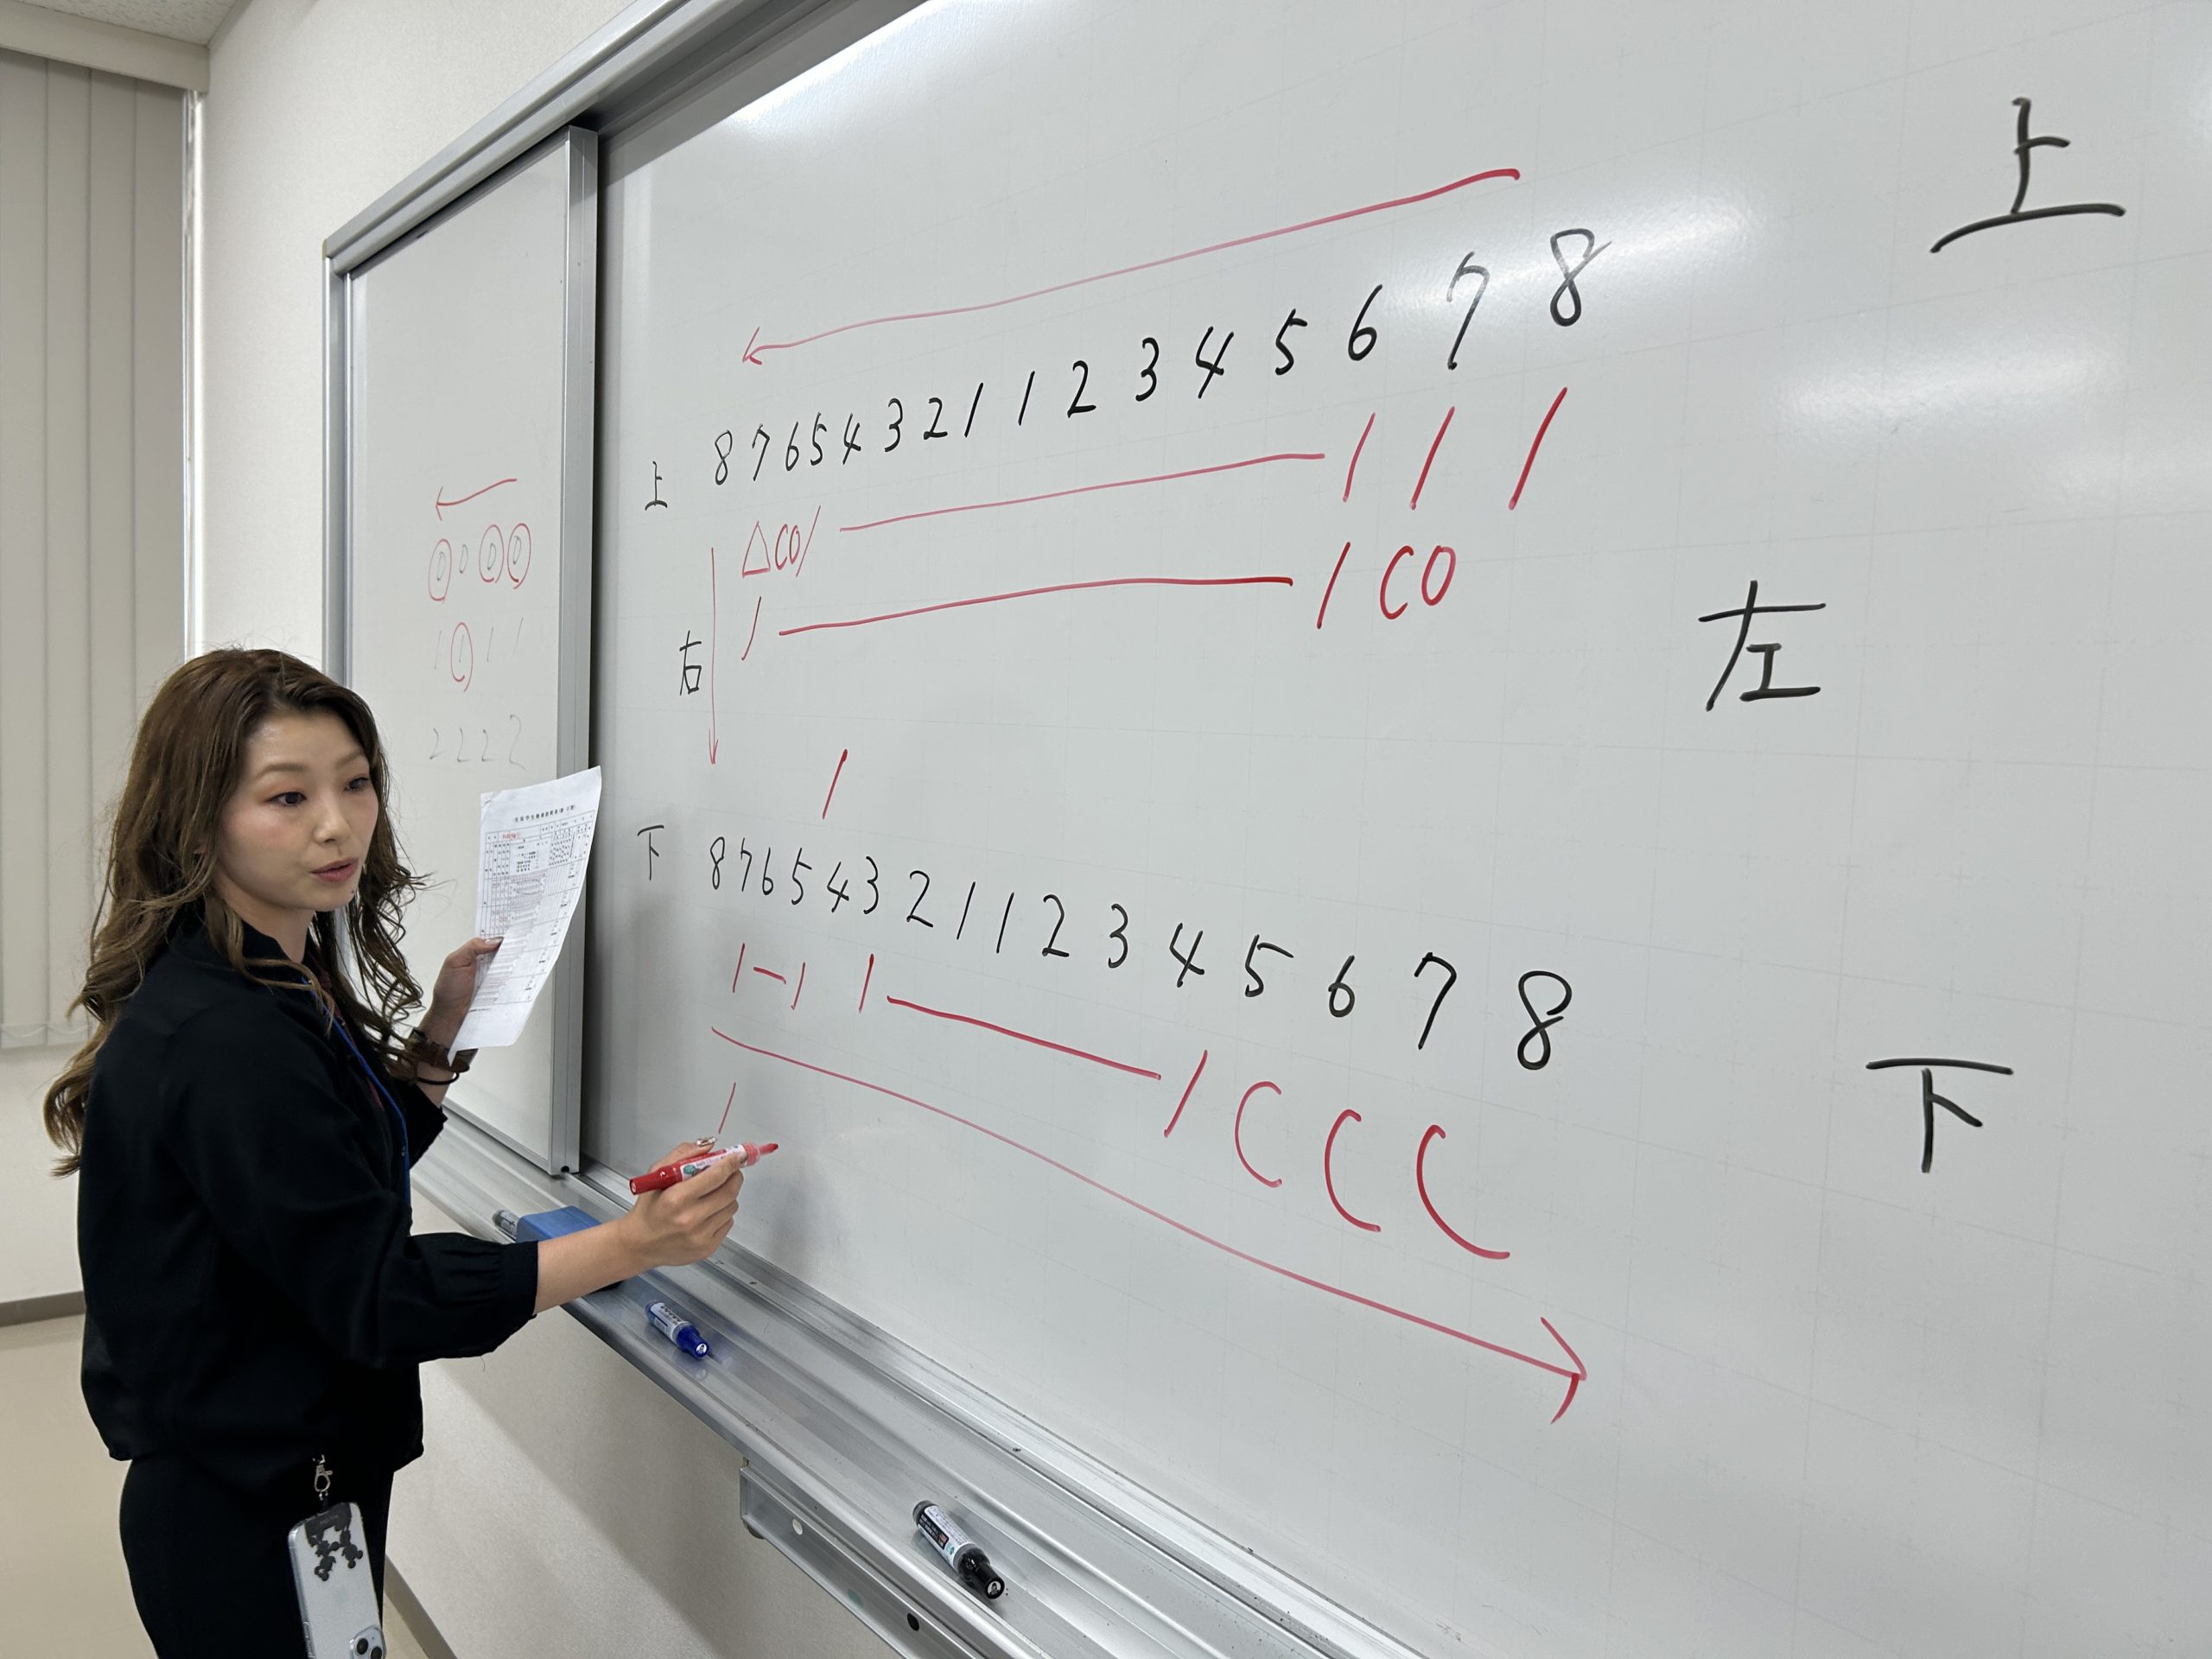 上
上 8 7 6 5 4 3 2 1 1 2 3 4 5 6 7 8
△ C O / — / / /
/ — / C O
右 左
/
下 8 7 6 5 4 3 2 1 1 2 3 4 5 6 7 8
/ — / / — / C C C
/
下
0 0 0 0
1 1 1 1
2 2 2 2